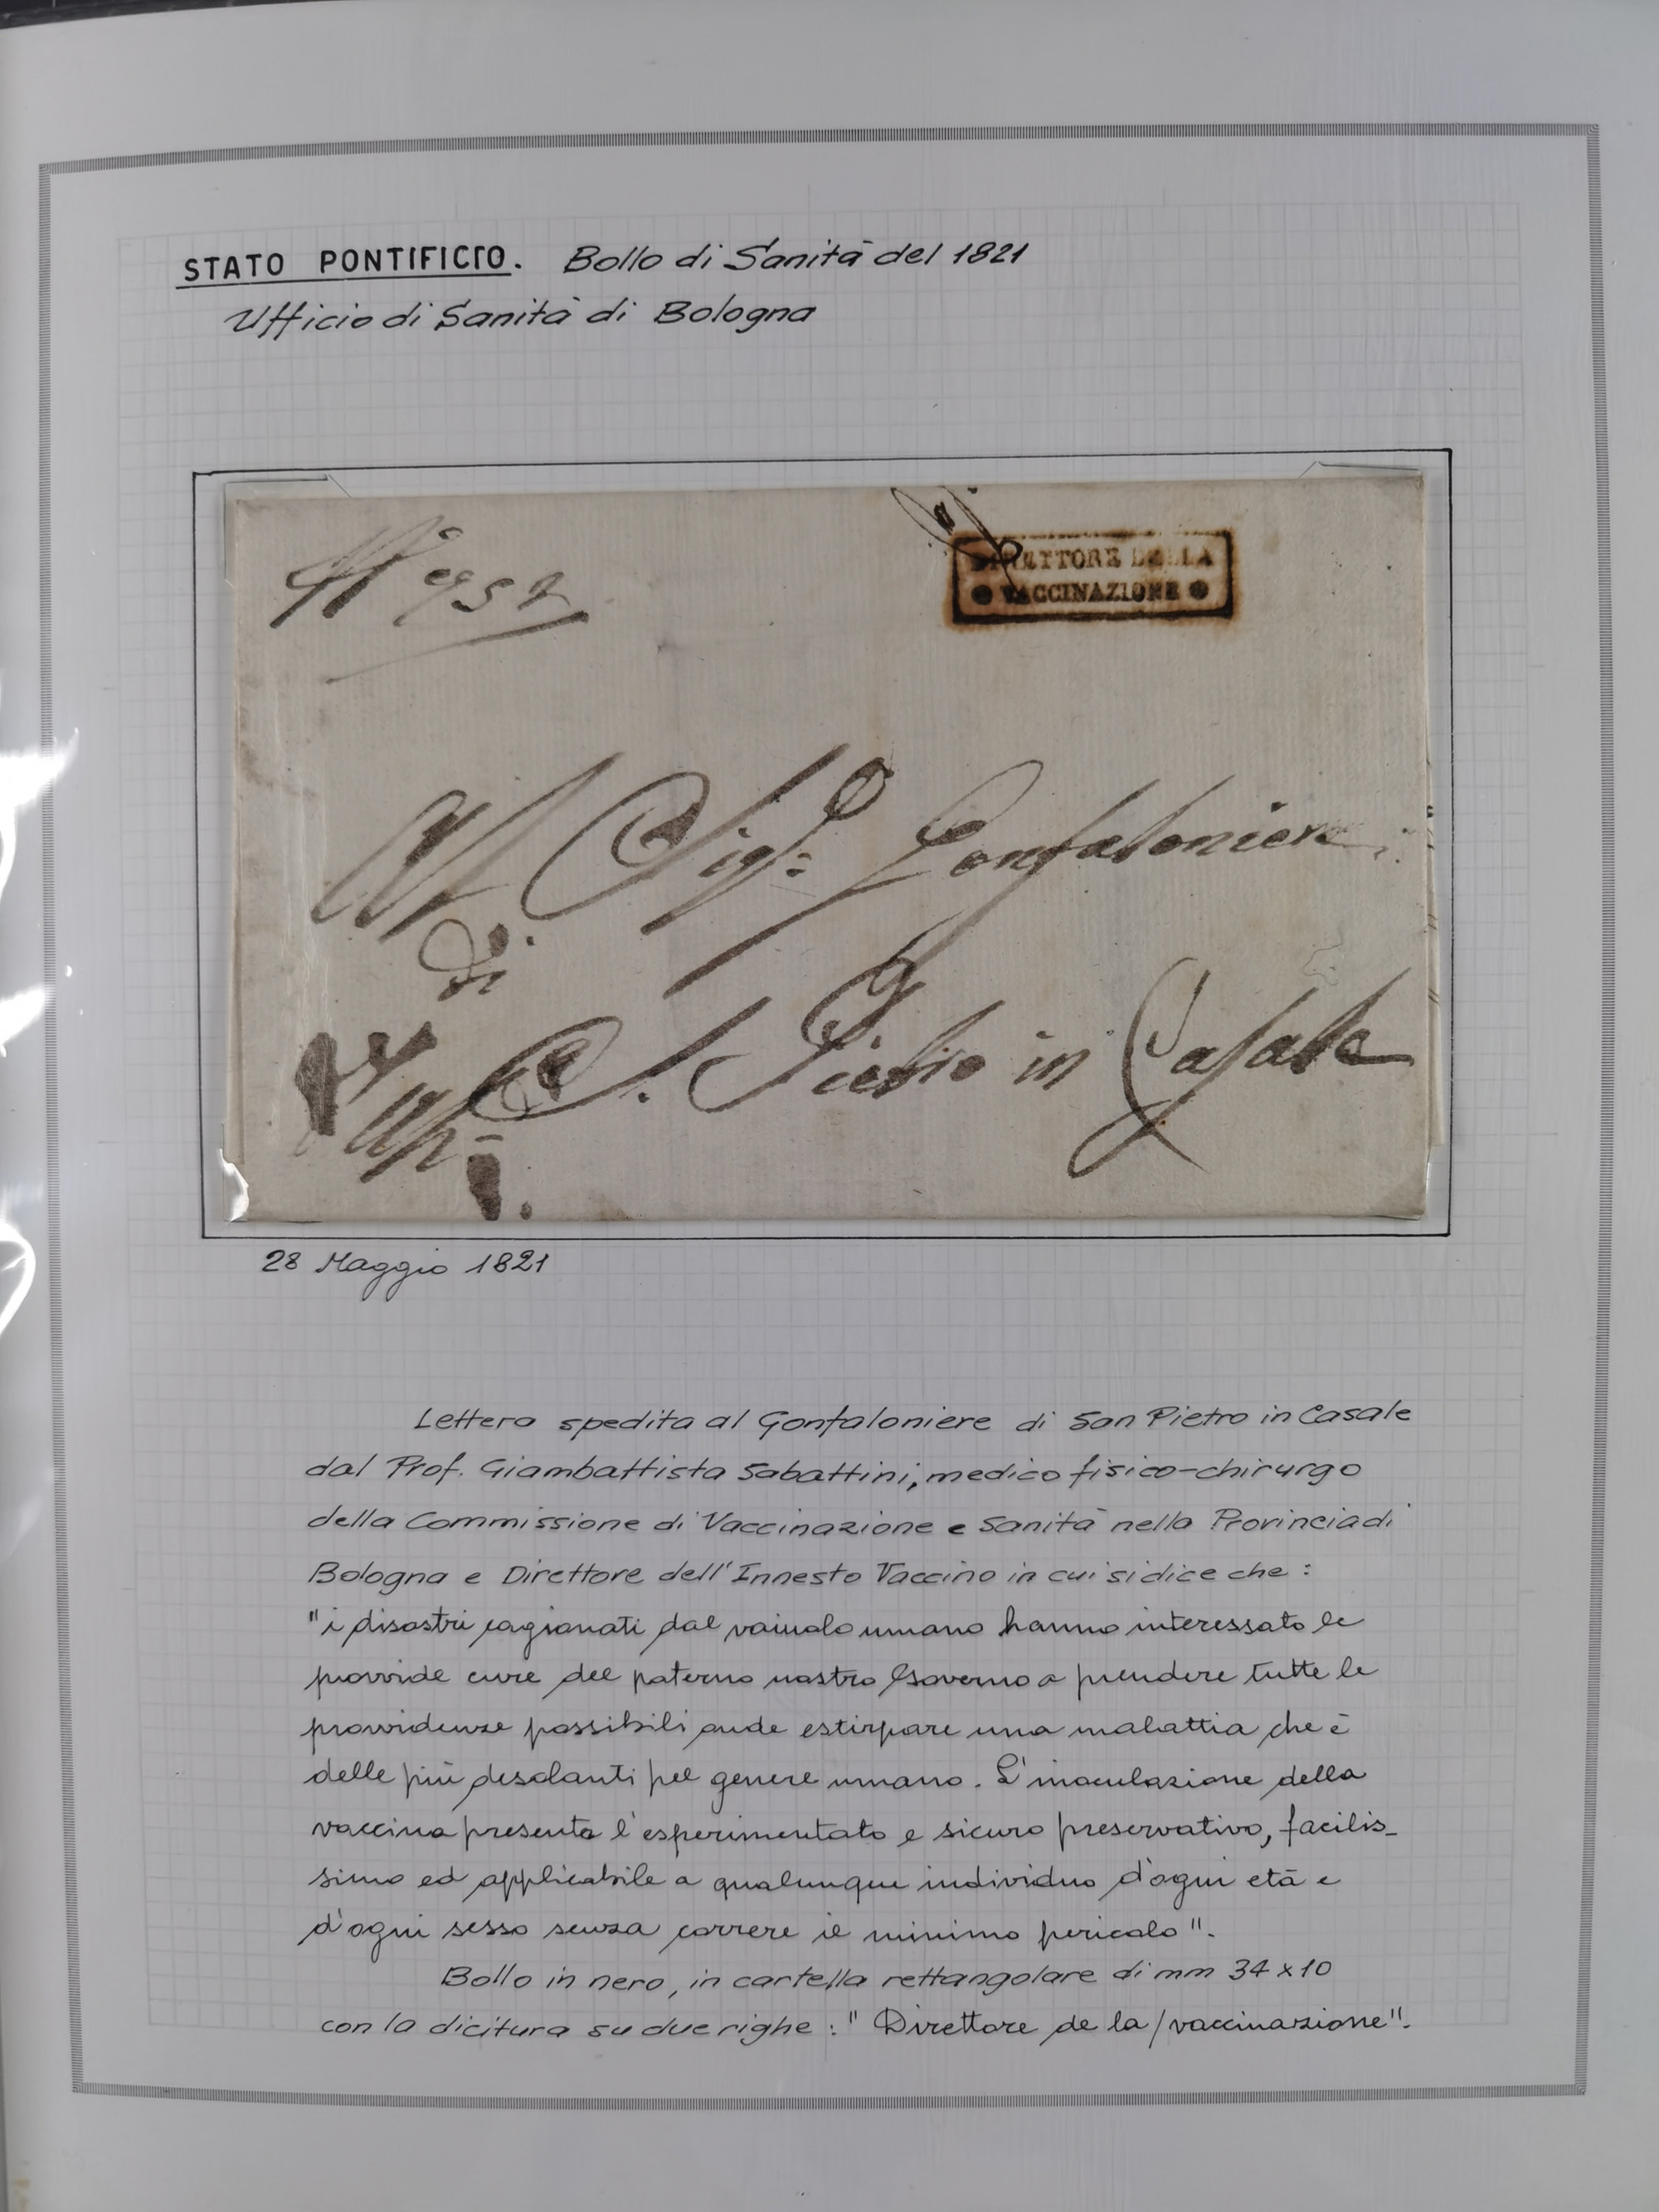 STATO PONTIFICIO. Bollo di Sanità del 1821
Ufficio di Sanità di Bologna
DIRETTORE DELLA
VACCINAZIONE
Al Sig.e Gonfaloniere
Di
S. Pietro in Casale
28 Maggio 1821
Lettera spedita al Gonfaloniere di San Pietro in Casale
dal Prof. Giambattista Sabattini, medico fisico-chirurgo
della Commissione di Vaccinazione e Sanità nella Provincia di
Bologna e Direttore dell'Innesto Vaccino in cui si dice che:
"i disastri cagionati dal vaiuolo umano hanno interessato le
provvide cure del paterno nostro Governo a prendere tutte le
provvidenze possibili onde estirpare una malattia che è
delle più desolanti pel genere umano. L'inoculazione della
vaccina presenta l'esperimentato e sicuro preservativo, facilis-
simo ed applicabile a qualunque individuo d'ogni età e
d'ogni sesso senza correre il minimo pericolo".
Bollo in nero, in cartella rettangolare di mm 34 x 10
con la dicitura su due righe: "Direttore de la/vaccinazione".